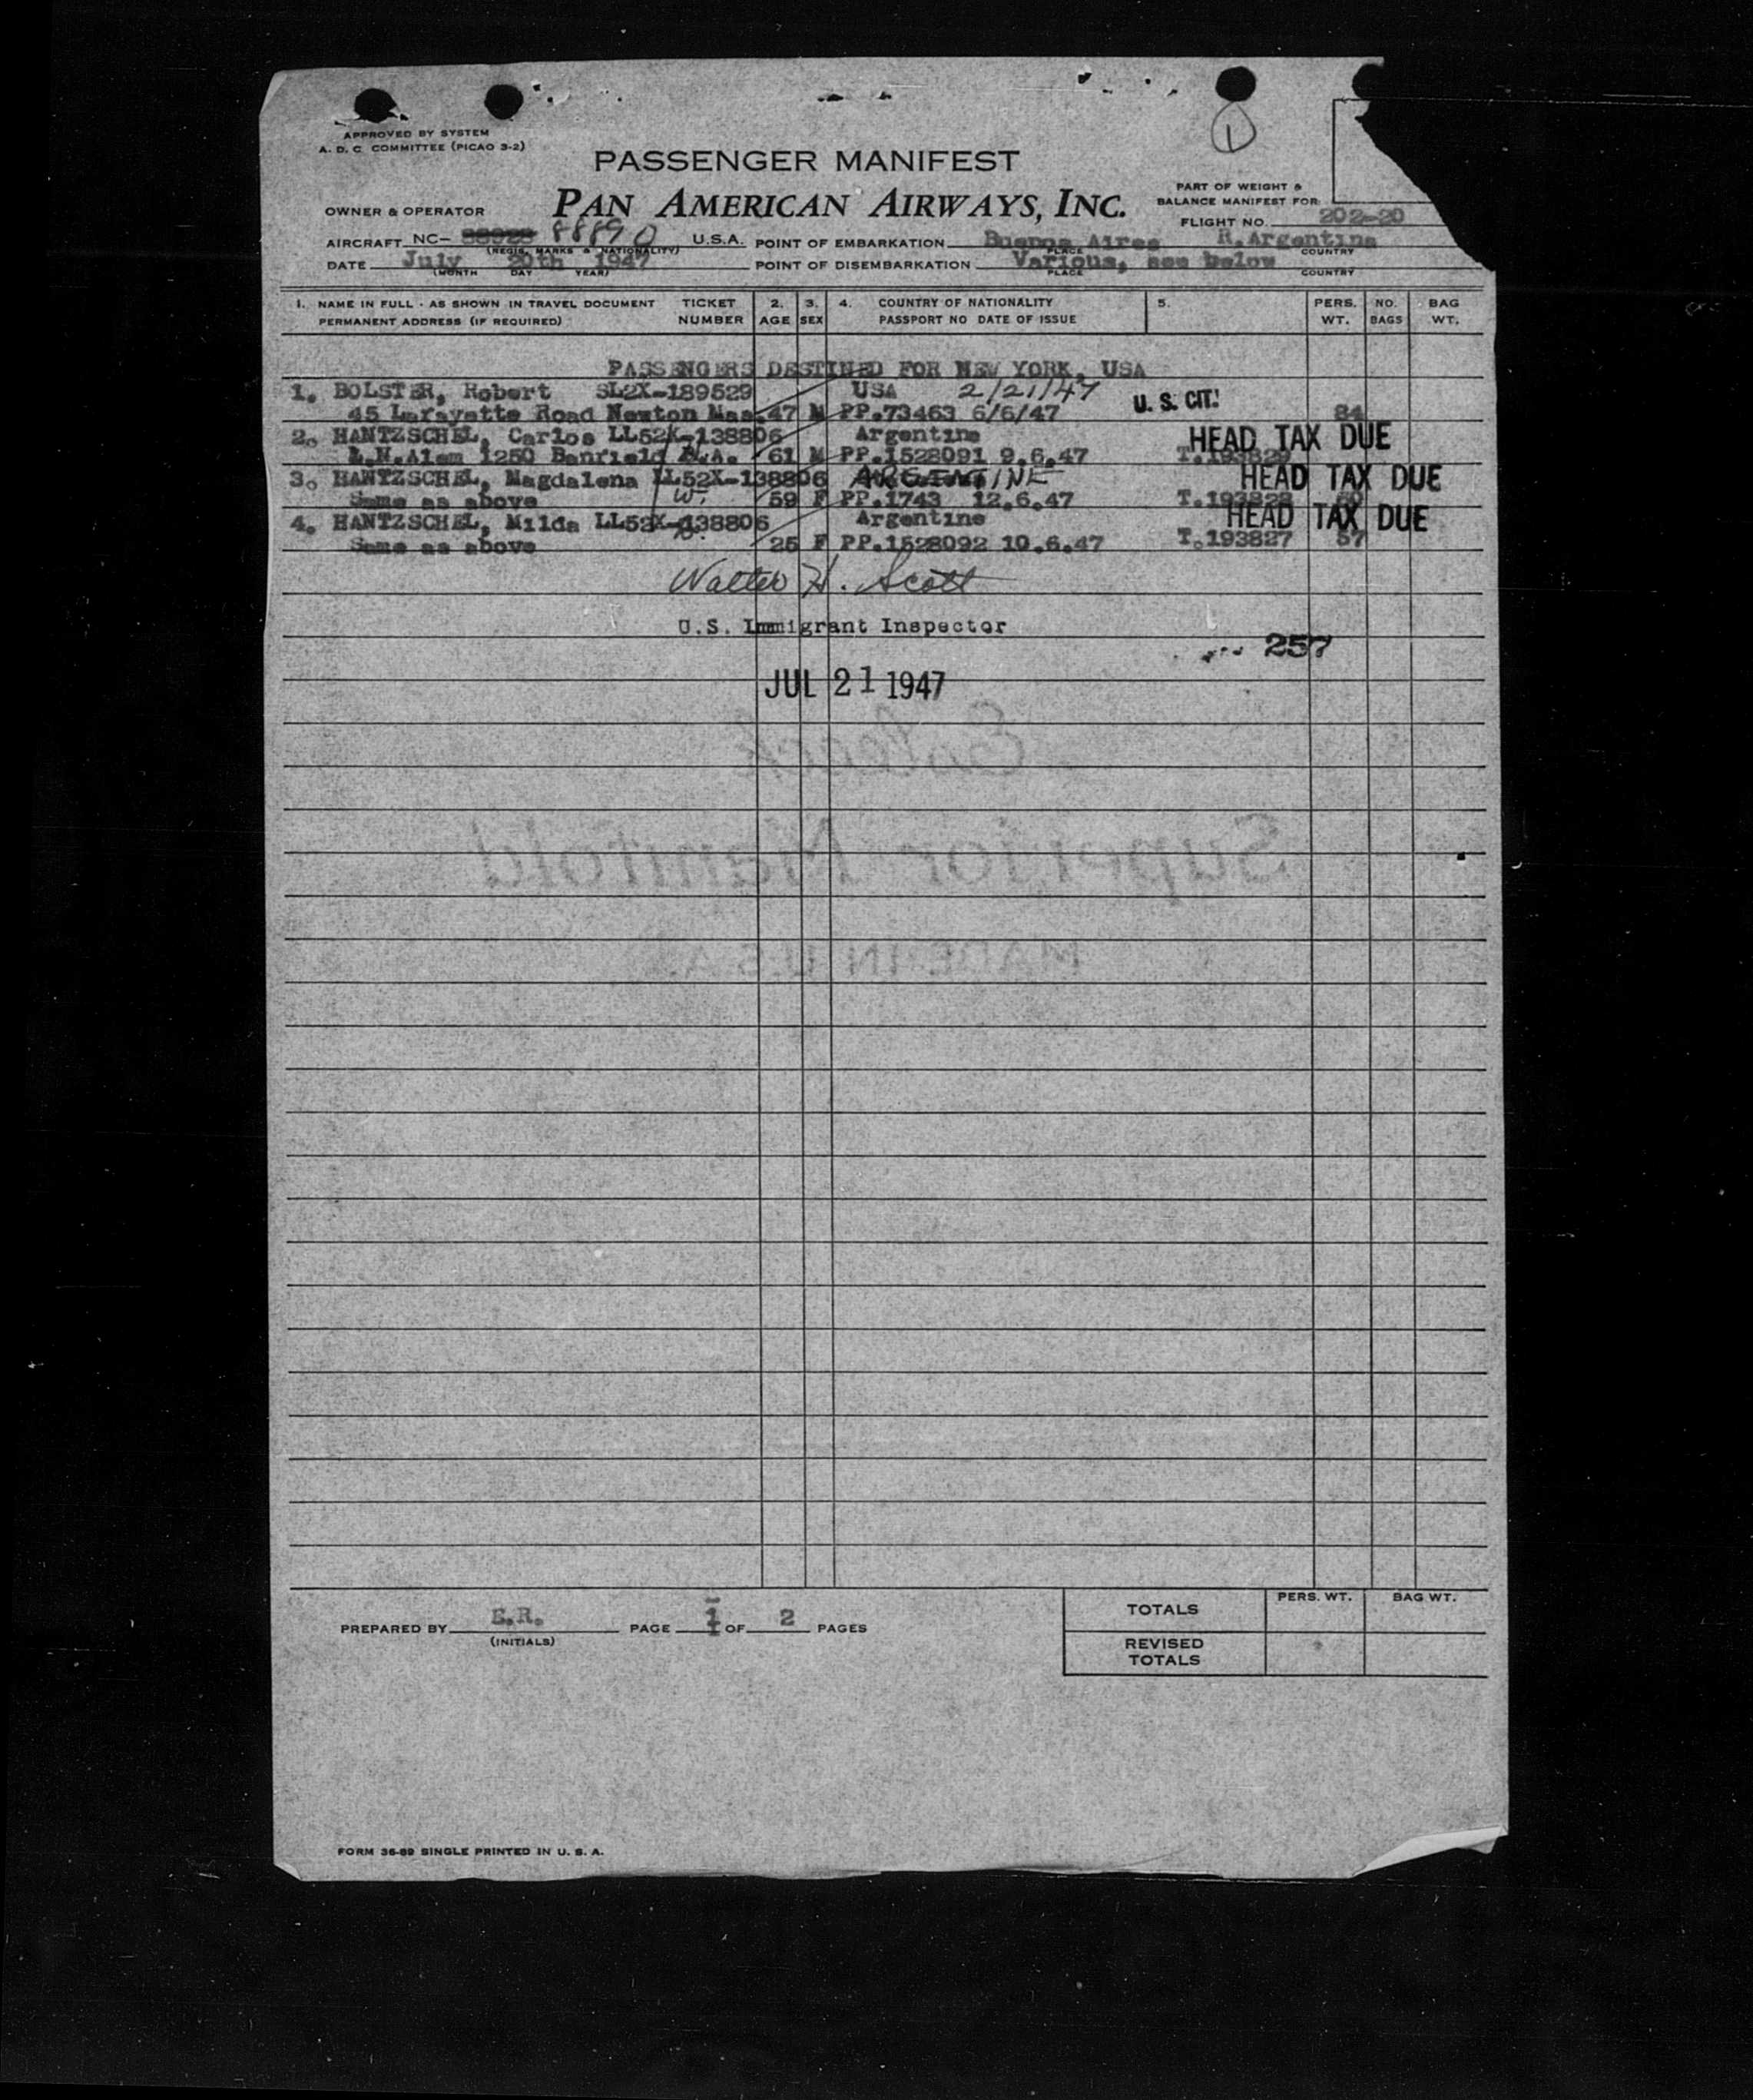 APPROVED BY SYSTEM
A. D. C. COMMITTEE (PICAO 3-2)
1
PASSENGER MANIFEST
PAN AMERICAN AIRWAYS, INC.
PART OF WEIGHT &
BALANCE MANIFEST FOR:
FLIGHT NO. 202-20
OWNER & OPERATOR
AIRCRAFT NC- 88890 U.S.A. POINT OF EMBARKATION Buenos Aires R.Argentina
(REGIS. MARKS & NATIONALITY) PLACE COUNTRY
DATE July 20th 1947 POINT OF DISEMBARKATION Various, see below
(MONTH DAY YEAR) PLACE COUNTRY
1. NAME IN FULL - AS SHOWN IN TRAVEL DOCUMENT TICKET 2. 3. 4. COUNTRY OF NATIONALITY 5. PERS. NO. BAG
PERMANENT ADDRESS (IF REQUIRED) NUMBER AGE SEX PASSPORT NO DATE OF ISSUE WT. BAGS WT.
PASSENGERS DESTINED FOR NEW YORK, USA
1. BOLSTER, Robert SL2X-189529 USA 2/21/47 U. S. CIT.
45 Lafayette Road Newton Mas. 47 M PP.73463 6/6/47 84
2. HANTZSCHEL, Carlos LL52X-138806 Argentine HEAD TAX DUE
L.N.Alem 1250 Banfield B.A. 61 M PP.1528091 9.6.47 T.193829
3. HANTZSCHEL, Magdalena LL52X-138806 ARGENTINE HEAD TAX DUE
Same as above W. 59 F PP.1743 12.6.47 T.193828 60
4. HANTZSCHEL, Milda LL52X-138806 Argentine HEAD TAX DUE
Same as above 25 F PP.1528092 10.6.47 T.193827 57
Walter H. Scott
U.S. Immigrant Inspector
257
JUL 21 1947
Superior Manifold
MADE IN U.S.A.
PREPARED BY E.R. PAGE 1 OF 2 PAGES
(INITIALS)
TOTALS PERS. WT. BAG WT.
REVISED
TOTALS
FORM 36-89 SINGLE PRINTED IN U. S. A.